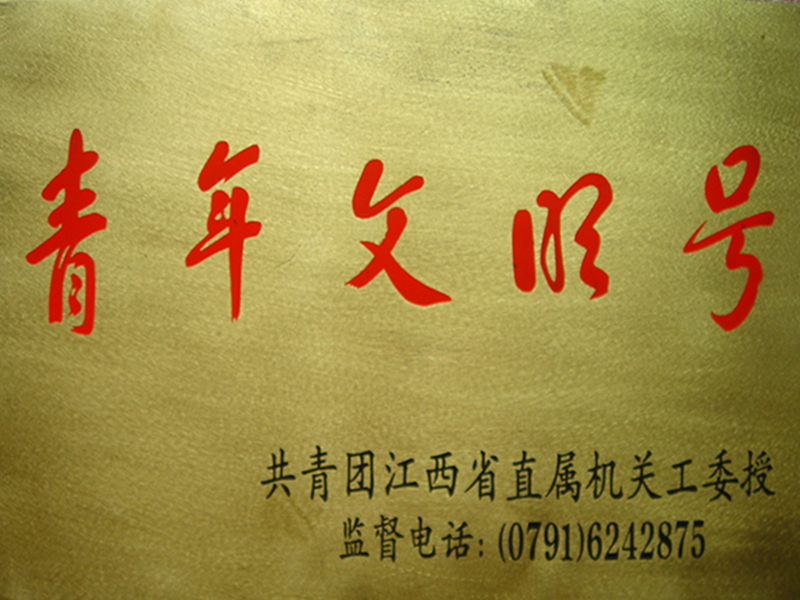 青年文明号
共青团江西省直属机关工委授
监督电话:(0791)6242875